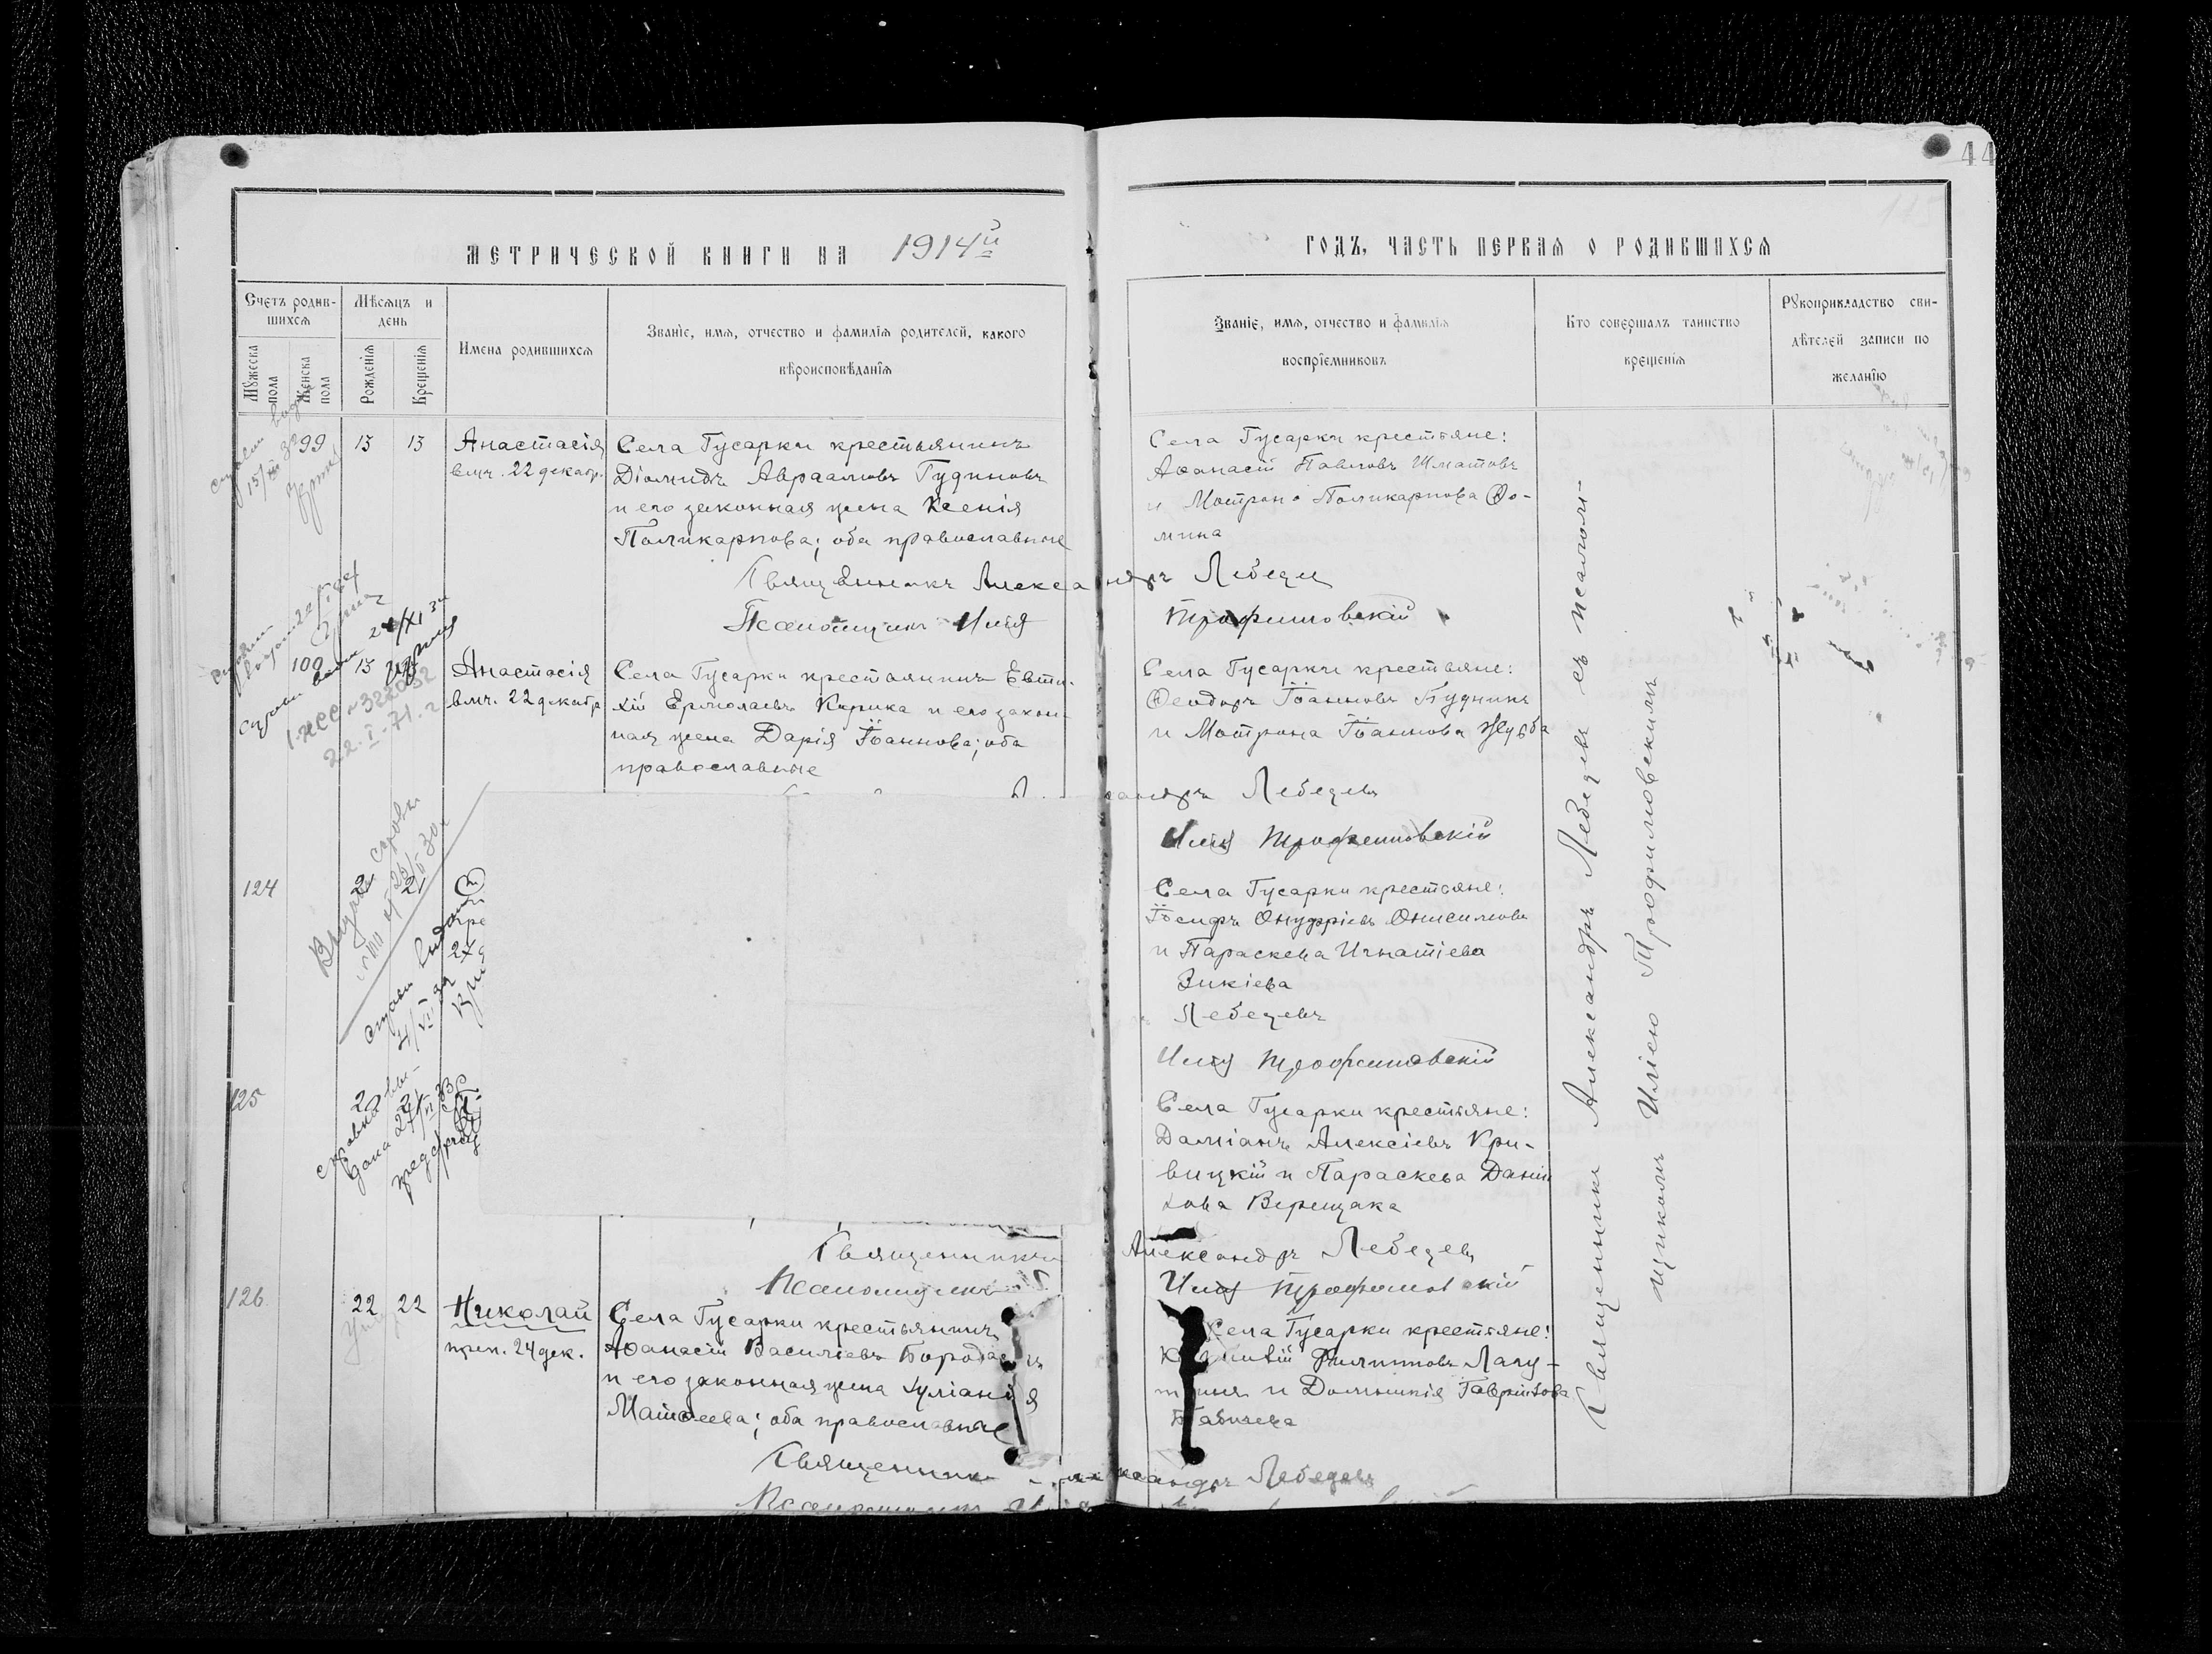 44
МЕТРИЧЕСКОЙ КНИГИ НА 1914й
ГОДЪ, ЧАСТЬ ПЕРВАЯ О РОДИВШИХСЯ
Счетъ родив-
шихся
Мужеска пола
Женска пола
Мѣсяцъ и
день
Рожденія
Крещенія
Имена родившихся
Званіе, имя, отчество и фамилія родителей, какого
вѣроисповѣданія
Званіе, имя, отчество и фамилія
воспріемниковъ
Кто совершалъ таинство
крещенія
Рукоприкладство сви-
дѣтелей записи по
желанію
99 13 13 Анастасія
вмч. 22 декабр.
Села Гусарки крестьянинъ
Діомидъ Авраамовъ Гудиновъ
и его законная жена Ксенія
Поликарпова; оба православные
Села Гусарки крестьяне:
Аѳанасій Павловъ Шматовъ
и Мотрона Поликарпова Ѳо-
мина
Священникъ Александръ Лебедевъ
Псаломщикъ Илія Трофимовскій
100 13
Анастасія
вмч. 22 декабря
Села Гусарки крестьянинъ Евти-
хій Ермолаевъ Кирика и его закон-
ная жена Дарія Іоаннова; оба
православные
Села Гусарки крестьяне:
Ѳеодоръ Іоанновъ Будникъ
и Мотрона Іоаннова Журба
22.I-71.г
Лебедевъ
Илія Трофимовскій
124 2 21
Села Гусарки крестьяне:
Іосифъ Онуфріевъ Онисимовъ
и Параскева Игнатіева
Зикіева
Лебедевъ
Илія Трофимовскій
125
Села Гусарки крестьяне:
Даміанъ Алексіевъ Кри-
вицкій и Параскева Даніи
лова Верещака
Священникъ Александръ Лебедевъ
Псаломщикъ Илія Трофимовскій
126 22 22 Николай
преп. 24 дек.
Села Гусарки крестьянинъ
Аѳанасій Василіевъ
и его законная жена Іуліанія
Матѳеева; оба православные
Села Гусарки крестьяне:
Филипповъ Лагу-
и Домникія Гавриилова
Бабичева
Священникъ Александръ Лебедевъ
Псаломщикъ Илія
Священникъ Александръ Лебедевъ съ псалом-
щикомъ Иліею Трофимовскимъ